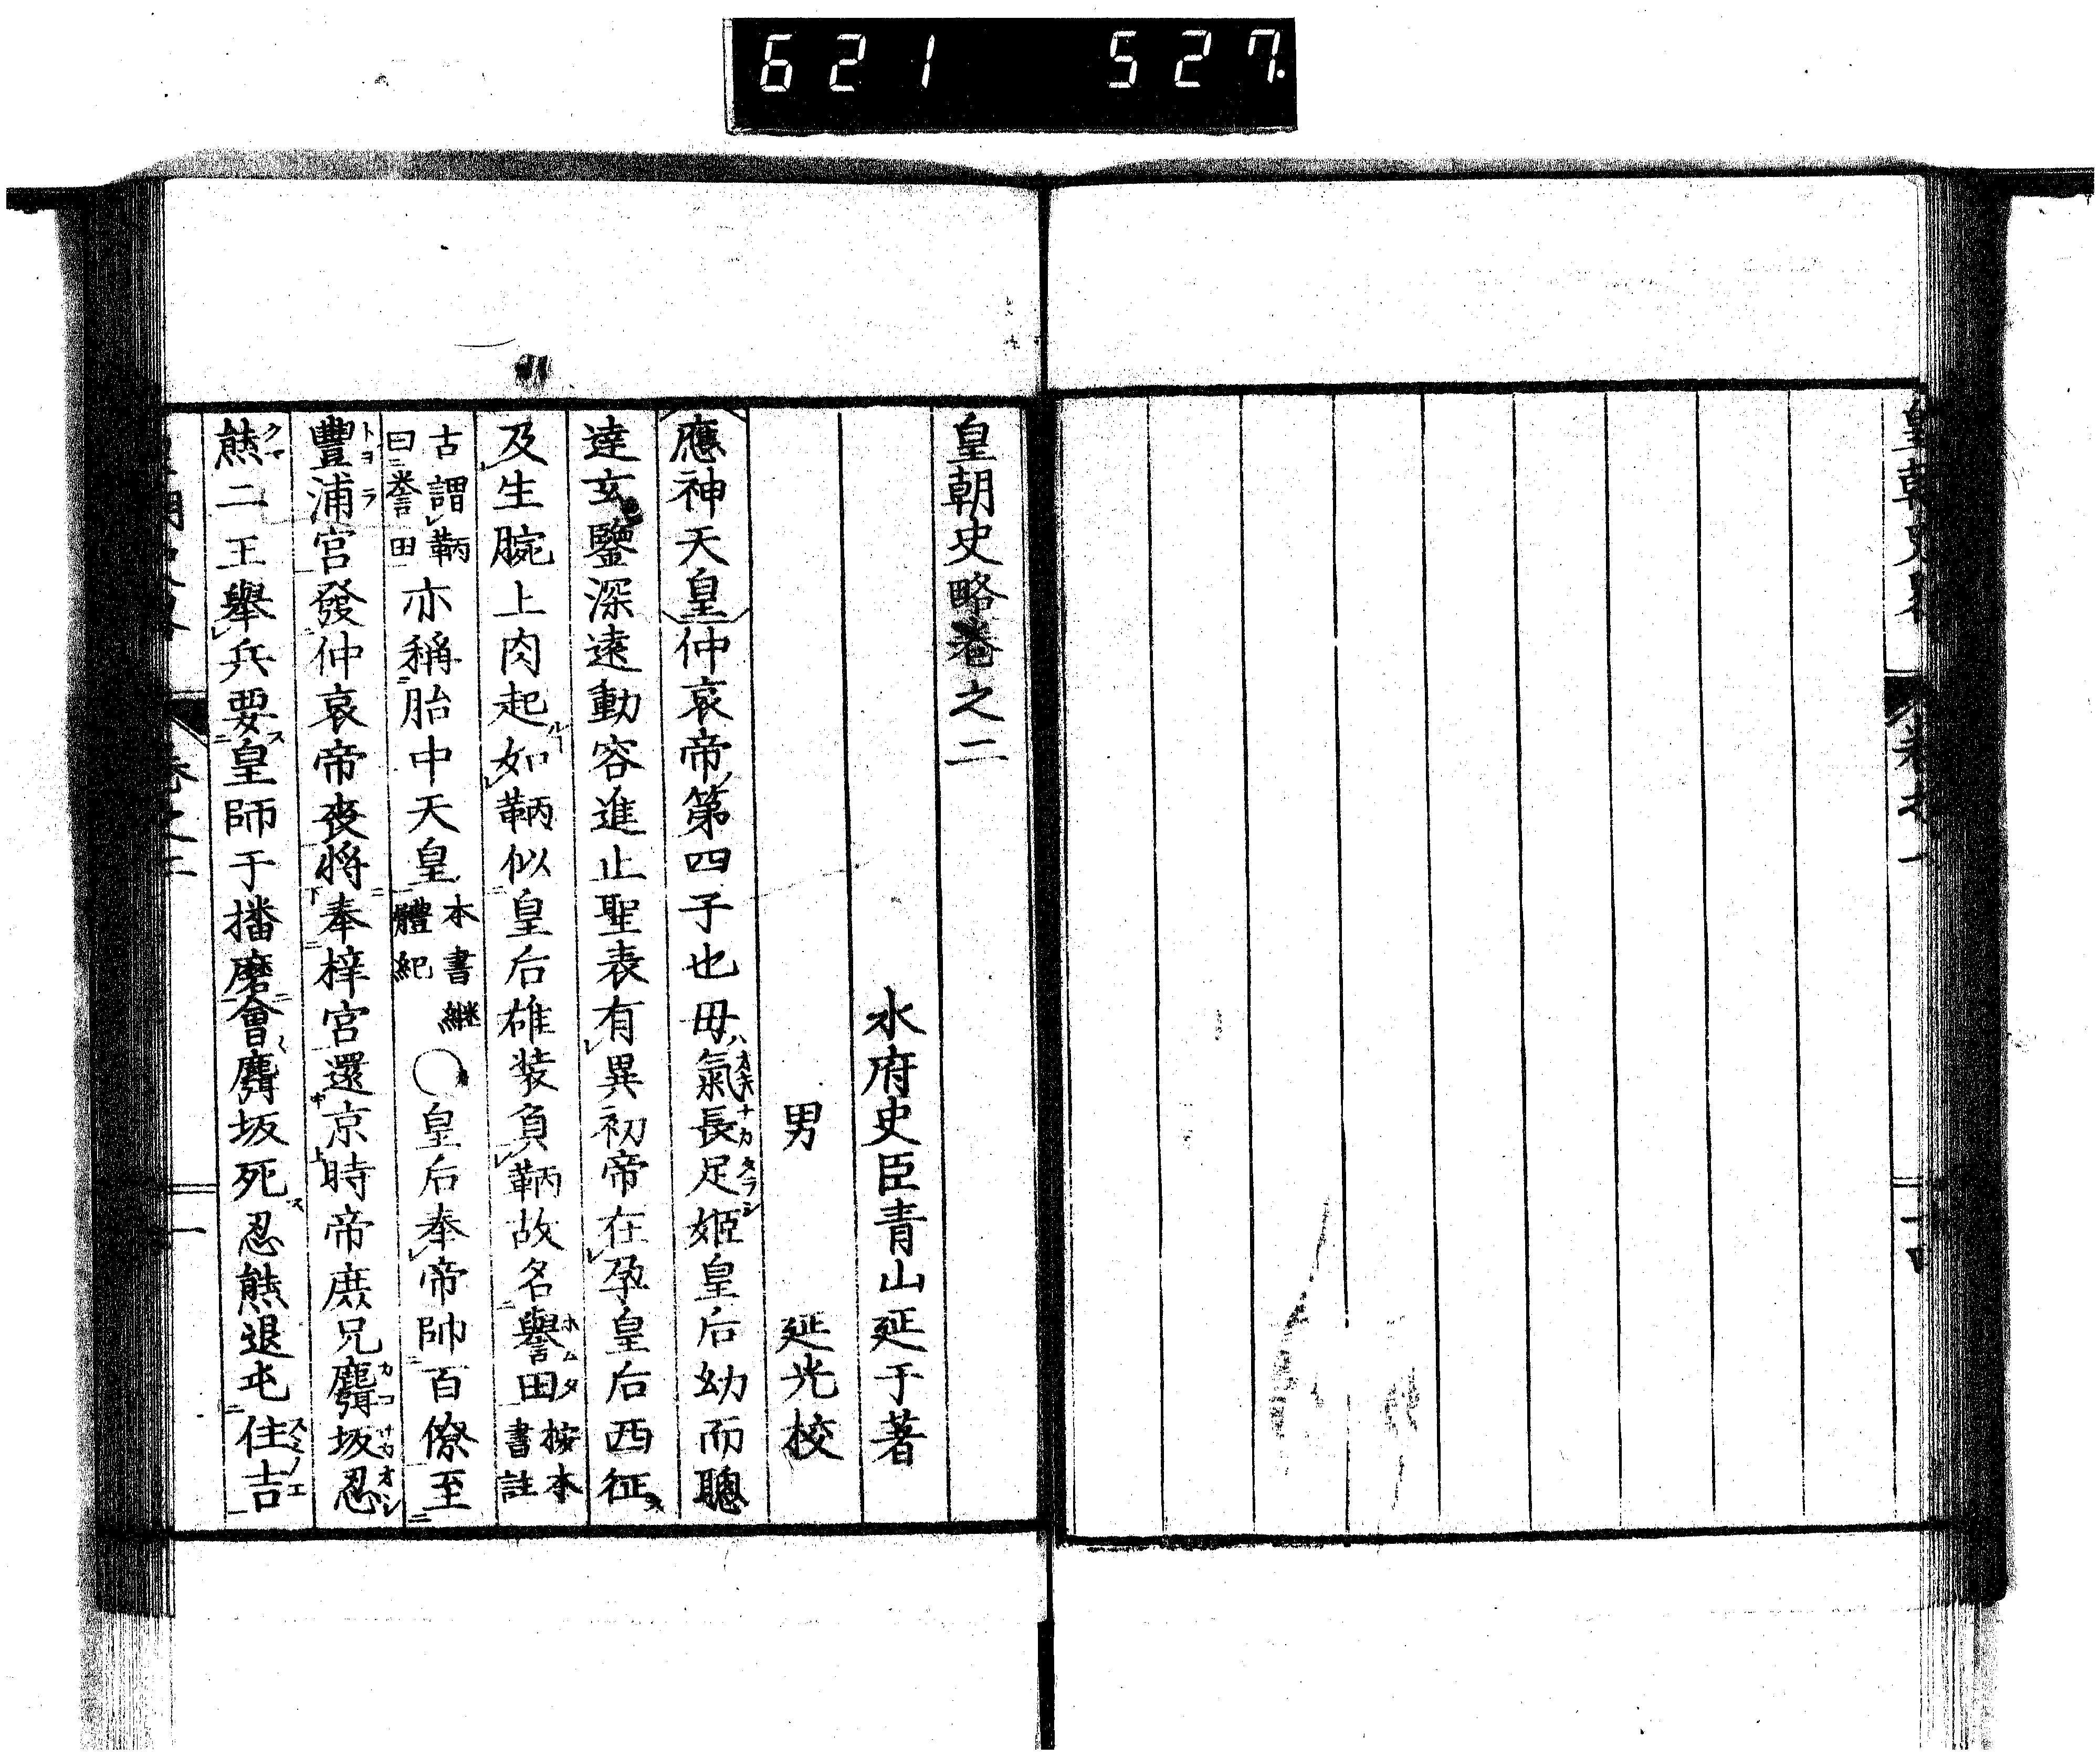 621 527
皇朝史略卷之二
水府史臣青山延于著
男 延光校
應神天皇仲哀帝第四子也母氣長足姬皇后幼而聰
達玄鑒深遠動容進止聖表有異初帝在孕皇后西征
及生腕上肉起如鞆似皇后雄裝負鞆故名譽田按本書註
古謂鞆曰譽田亦稱胎中天皇本書繼體紀○皇后奉帝帥百僚至
豐浦宮發仲哀帝喪將奉梓宮還京時帝庶兄麛坂忍
熊二王舉兵要皇師于播磨會麛坂死忍熊退屯住吉